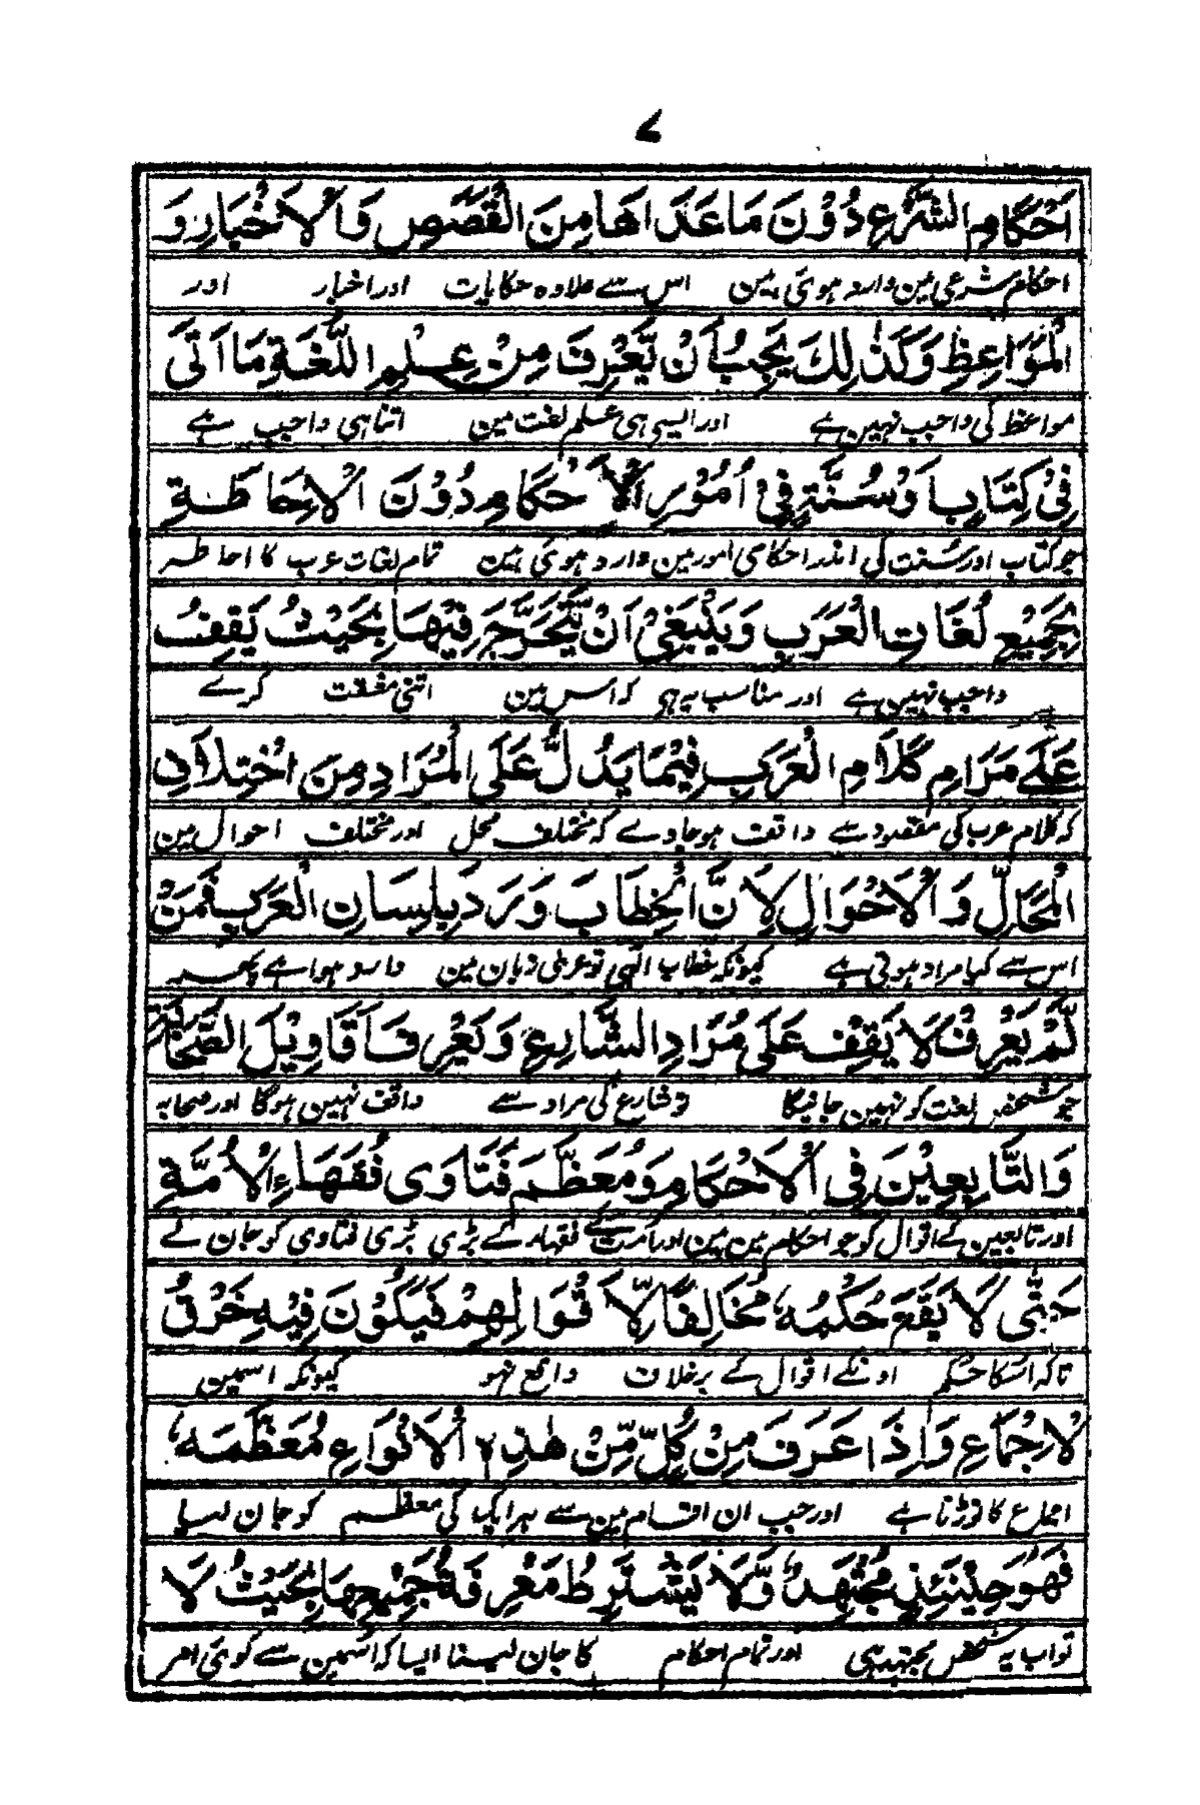 ٧
اَحْكَامِ الشَّرْعِ دُوْنَ مَا عَدَاهَا مِنَ الْقَصَصِ وَالْاَخْبَارِ وَ
احکام شرعی مین وارد ہوئی ہین اس سے علاوہ حکایات اور اخبار اور
الْمَوَاعِظِ وَكَذٰلِكَ يَجِبُ اَنْ يَّعْرِفَ مِنْ عِلْمِ اللُّغَةِ مَا اَتٰى
مواعظ کی واجب نہین ہے اور ایسی ہی علم لغت مین اتنا ہی واجب ہے
فِيْ كِتَابٍ اَوْ سُنَّةٍ فِيْ اُمُوْرِ الْاَحْكَامِ دُوْنَ الْاِحَاطَةِ
جو کتاب اور سنت کی اندر احکامی امور مین وارد ہوئی ہین تمام لغات عرب کا احاطہ
بِجَمِيْعِ لُغَاتِ الْعَرَبِ وَيَنْبَغِيْ اَنْ يَّتَحَرَّجَ فِيْهَا بِحَيْثُ يَقِفُ
واجب نہین ہے اور مناسب یہ ہی کہ اس مین اتنی مشقت کرے
عَلٰى مَرَامِ كَلَامِ الْعَرَبِ فِيْمَا يَدُلُّ عَلَى الْمُرَادِ مِنَ اخْتِلَافِ
کہ کلام عرب کی مقصود سے واقف ہو جاوے کہ مختلف محل اور مختلف احوال مین
الْمَحَالِّ وَالْاَحْوَالِ لِاَنَّ الْخِطَابَ وَرَدَ بِلِسَانِ الْعَرَبِ فَمَنْ
اس سے کیا مراد ہوتی ہے کیونکہ خطاب الٰہی تو عربی زبان مین وارد ہوا ہے پھر
لَمْ يَعْرِفْ لَا يَقِفُ عَلٰى مُرَادِ الشَّارِعِ وَيَعْرِفُ اَقَاوِيْلَ الصَّحَابَةِ
جو شخص لغت کو نہین جانیگا تو شارع کی مراد سے واقف نہین ہوگا اور صحابہ
وَالتَّابِعِيْنَ فِي الْاَحْكَامِ وَمُعَظَّمَ فَتَاوٰى فُقَهَاءِ الْاُمَّةِ
اور تابعین کے اقوال کو جو احکام مین ہین اور امت کے فقہا کے بڑی بڑی فتاوی کو جان لے
حَتّٰى لَا يَقَعَ حُكْمُهٗ مُخَالِفًا لِاَقْوَالِهِمْ فَيَكُوْنَ فِيْهِ خَرْقُ
تاکہ اسکا حکم اونکے اقوال کے برخلاف واقع نہو کیونکہ اسمین
الْاِجْمَاعِ وَاِذَا عَرَفَ مِنْ كُلٍّ مِّنْ هٰذِهِ الْاَنْوَاعِ مُعَظَّمَهٗ
اجماع کا توڑنا ہے اور جب ان اقسام مین سے ہر ایک کی معظم کو جان لیا
فَهُوَ حِيْنَئِذٍ مُجْتَهِدٌ وَّلَا يَشْتَرِطُ مَعْرِفَةُ جَمِيْعِهَا بِحَيْثُ لَا
تو اب یہ شخص مجتہد ہی اور تمام احکام کا جان لینا ایسا کہ اسمین سے کوئی امر